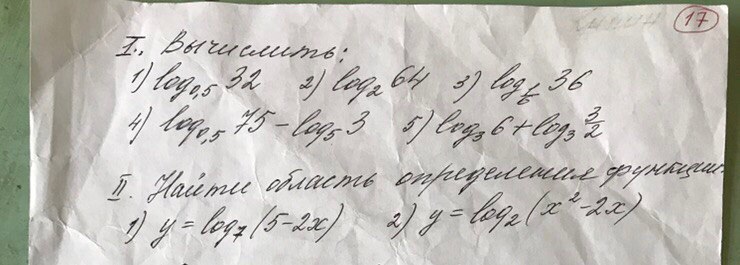 17
I. Вычислить:
1) log₀,₅ 32 2) log₂ 64 3) log_{1/6} 36
4) log₀,₅ 75 - log₅ 3 5) log₃ 6 + log₃ 3/2
II. Найти область определения функции.
1) y = log₇ (5-2x) 2) y = log₂ (x² - 2x)